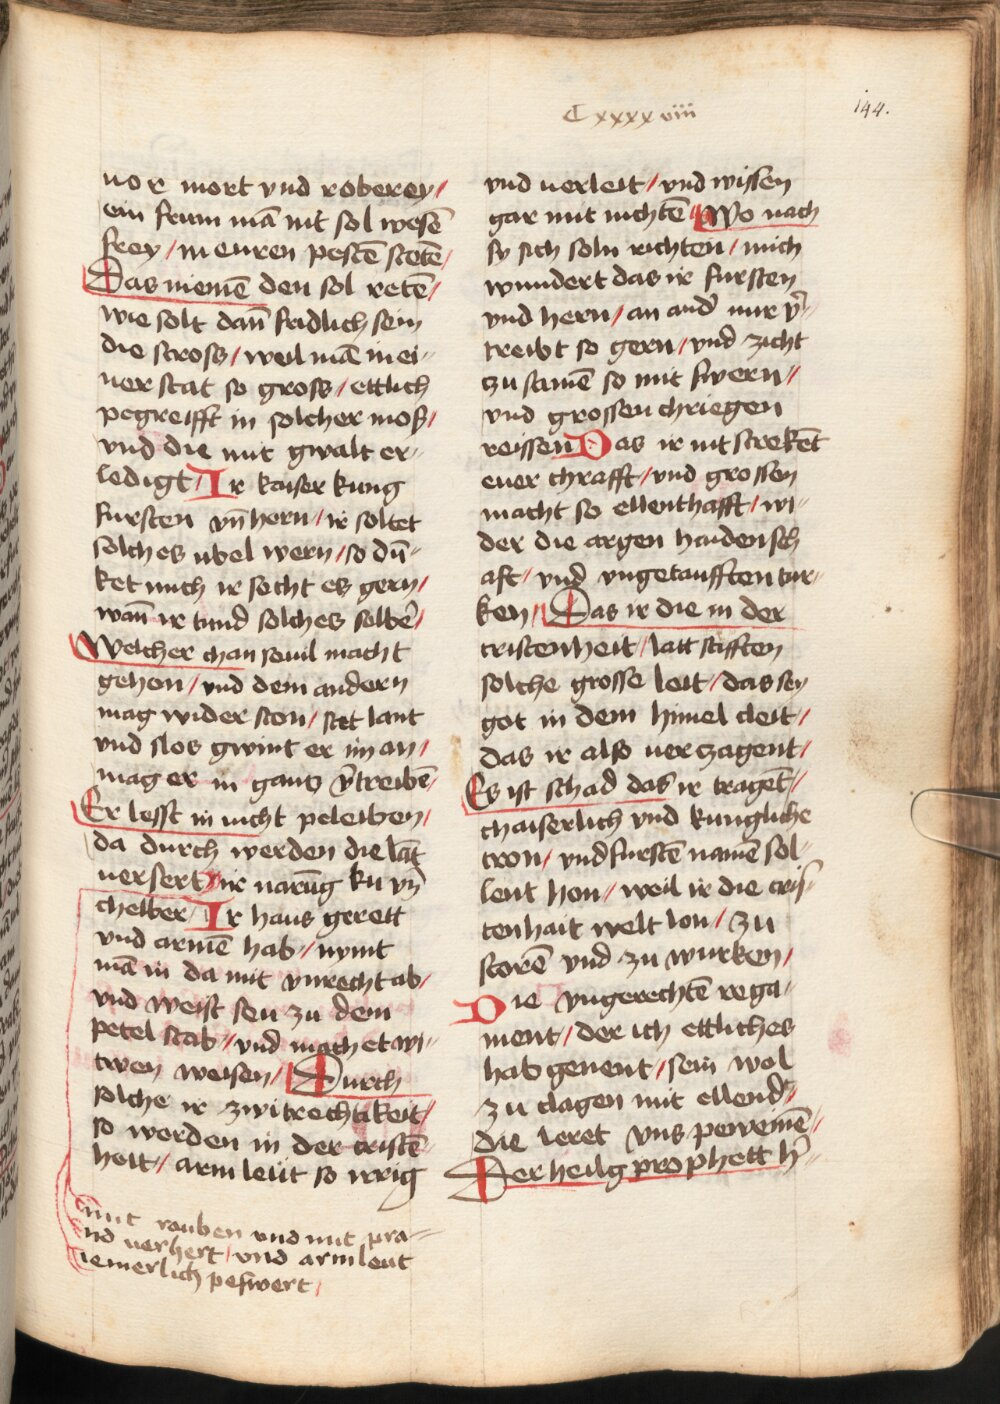 C xxxx viii
144.
vor mort vnd roberey /
ein frum mā nit sol wesē
frey / in euren pestē stetē /
Das niemē den sol retē /
wie solt dañ fridlich sein
die stross / weil mā in ei-
ner stat so gross / ettlich
pegreifft in solcher moß /
vnd die mit gwalt er-
ledigt / Ir kaiser kung
fursten vñ hern / ir soltet
solch es ubel wern / so dū-
ket mich ir secht es gern /
wañ ir tund solches selbē /
Welcher chan souil macht
gehon / vnd dem andern
mag wider ston / stet lant
vnd slos gwint er im an /
mag er in gantz v̄treibē /
Er lesst in nicht peleiben /
da durch werden die lāt
uersert / ir narūg ku vñ
chelber / Ir haus gerett
vnd armē hab / nymt
mā in da mit vnrecht ab /
vnd weist seu zu dem
petel stab / vnd machet wi-
twen weisen / Durch
solche ir zwitrechtikeit /
so werden in der cristē
heit / arm leut so irrig
mit rauben vnd mit pra-
nd uerhert / vnd arm leut
iemerlich peswert /
vnd uerleit / vnd wissen
gar mit nichtē / Wo nach
sy sich soln richten / mich
wundert das ir fursten
vnd hern / an and̄ nur v̄-
treibt so gern / vnd zicht
zu samē so mit swern /
vnd grossen chriegen
reissen Das ir nit strekēt
euer chrafft / vnd grossen
macht so ellenthafft / wi-
der die argen haidensch
aft / vnd vngetaufften tur-
ken / Das ir die in der
cristenheit / latt stifften
solche grosse leit / das sey
got in dem himel cleit /
das ir also uerzagent /
Es ist schad das ir tragēt /
chaiserlich vnd kungliche
cron / vnd furstē namē sol-
lent hon / weil ir die cris-
tenhait welt lon / zu
storē vnd zu wurken /
Die vngerechtē rega-
ment / der ich ettliches
hab genent / sein wol
zu clagen mit ellend /
die leret vns peweinē /
Der heilg prophett h̄